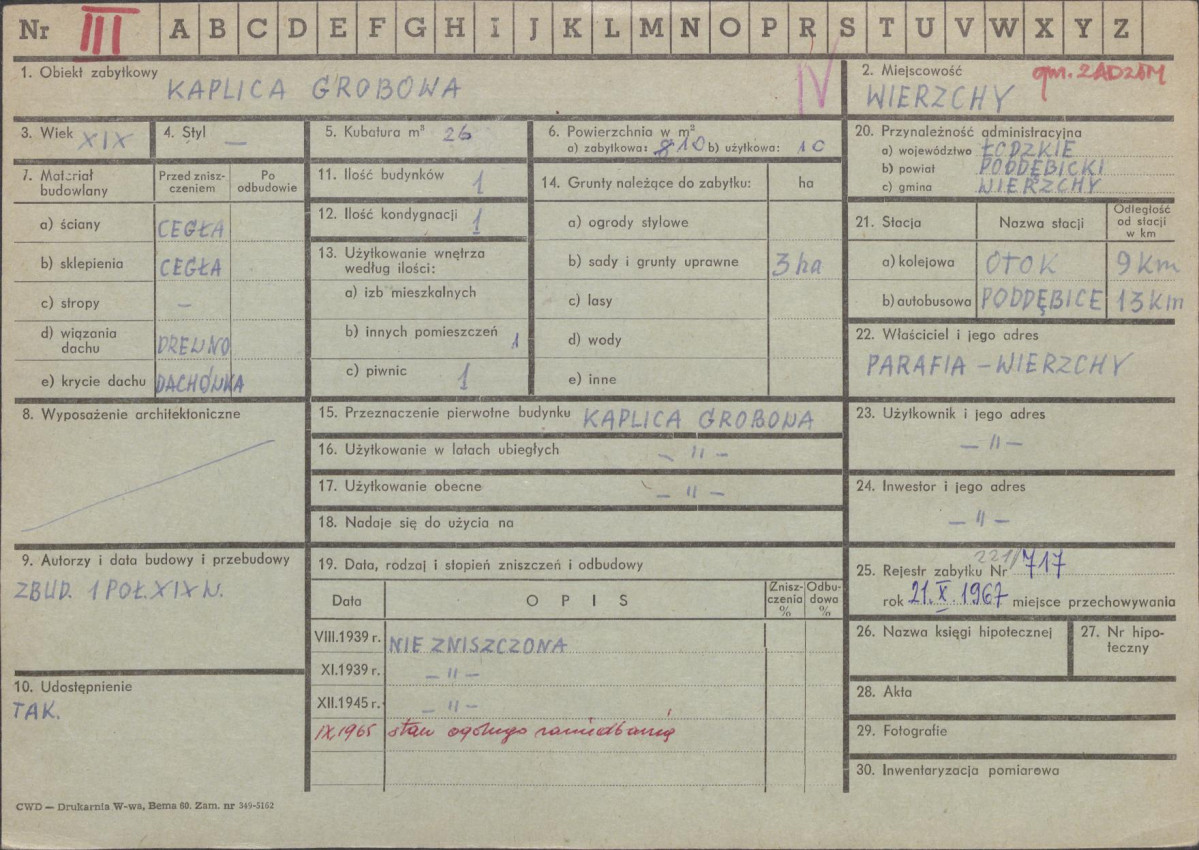 Nr III A B C D E F G H I J K L M N O P R S T U V W X Y Z
1. Obiekt zabytkowy KAPLICA GROBOWA IV
2. Miejscowość gm. ZADZIM
WIERZCHY
3. Wiek XIX
4. Styl —
5. Kubatura m³ 26
6. Powierzchnia w m²
a) zabytkowa: 10 b) użytkowa: 10
20. Przynależność administracyjna
a) województwo ŁÓDZKIE
b) powiat PODDĘBICKI
c) gmina WIERZCHY
7. Materiał budowlany
Przed zniszczeniem
Po odbudowie
a) ściany CEGŁA
b) sklepienia CEGŁA
c) stropy —
d) wiązania dachu DREWNO
e) krycie dachu DACHÓWKA
11. Ilość budynków 1
12. Ilość kondygnacji 1
13. Użytkowanie wnętrza
według ilości:
a) izb mieszkalnych
b) innych pomieszczeń 1
c) piwnic 1
14. Grunty należące do zabytku: ha
a) ogrody stylowe
b) sady i grunty uprawne 3 ha
c) lasy
d) wody
e) inne
21. Stacja
Nazwa stacji
Odległość od stacji w km
a) kolejowa OTOK 9 Km
b) autobusowa PODDĘBICE 13 Km
22. Właściciel i jego adres
PARAFIA – WIERZCHY
8. Wyposażenie architektoniczne
15. Przeznaczenie pierwotne budynku KAPLICA GROBOWA
16. Użytkowanie w latach ubiegłych — " —
17. Użytkowanie obecne — " —
18. Nadaje się do użycia na
23. Użytkownik i jego adres
— " —
24. Inwestor i jego adres
— " —
9. Autorzy i data budowy i przebudowy
ZBUD. 1 POŁ. XIX W.
10. Udostępnienie
TAK.
19. Data, rodzaj i stopień zniszczeń i odbudowy
Data
OPIS
Zniszczenia %
Odbudowa %
VIII.1939 r. NIE ZNISZCZONA
XI.1939 r. — " —
XII.1945 r. — " —
IX.1965 stan ogólnego zaniedbania
25. Rejestr zabytku Nr 221/717
rok 21.X.1967 miejsce przechowywania
26. Nazwa księgi hipotecznej
27. Nr hipoteczny
28. Akta
29. Fotografie
30. Inwentaryzacja pomiarowa
CWD — Drukarnia W-wa, Bema 60. Zam. nr 349-5162